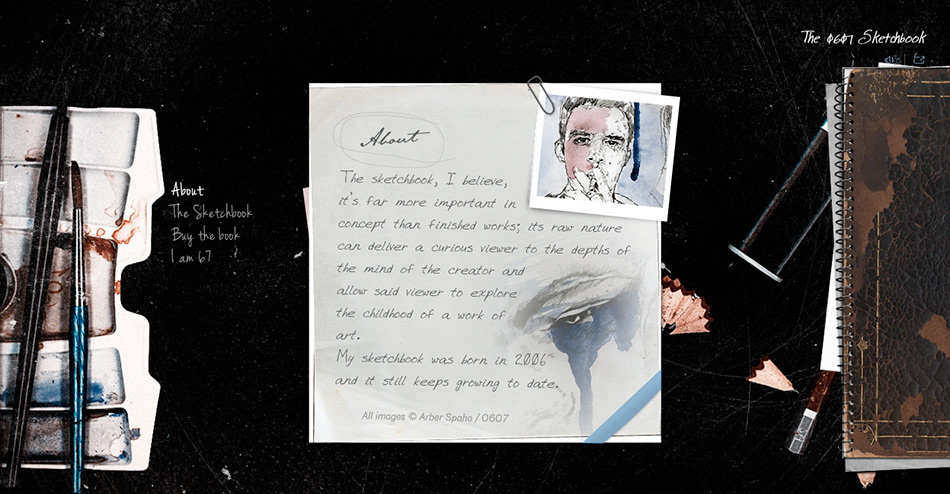 The 0607 Sketchbook
About
The Sketchbook
Buy the book
I am 67
About
The sketchbook, I believe,
it's far more important in
concept than finished works; its raw nature
can deliver a curious viewer to the depths of
the mind of the creator and
allow said viewer to explore
the childhood of a work of
art.
My sketchbook was born in 2006
and it still keeps growing to date.
All images © Arber Spaho / 0607